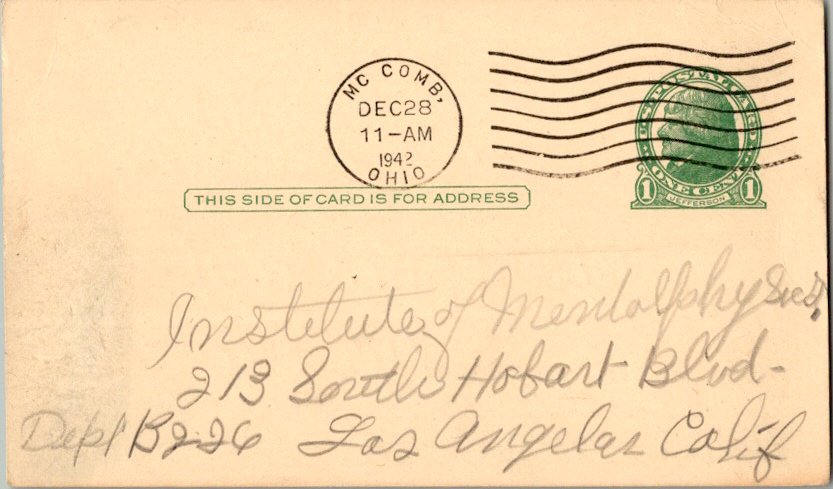 MC COMB,
DEC 28
11-AM
1942
OHIO
U.S. POSTAL CARD
ONE CENT
1 JEFFERSON 1
THIS SIDE OF CARD IS FOR ADDRESS
Institute of Mentalphysics,
213 South Hobart Blvd-
Dept B226 Los Angelas Calif